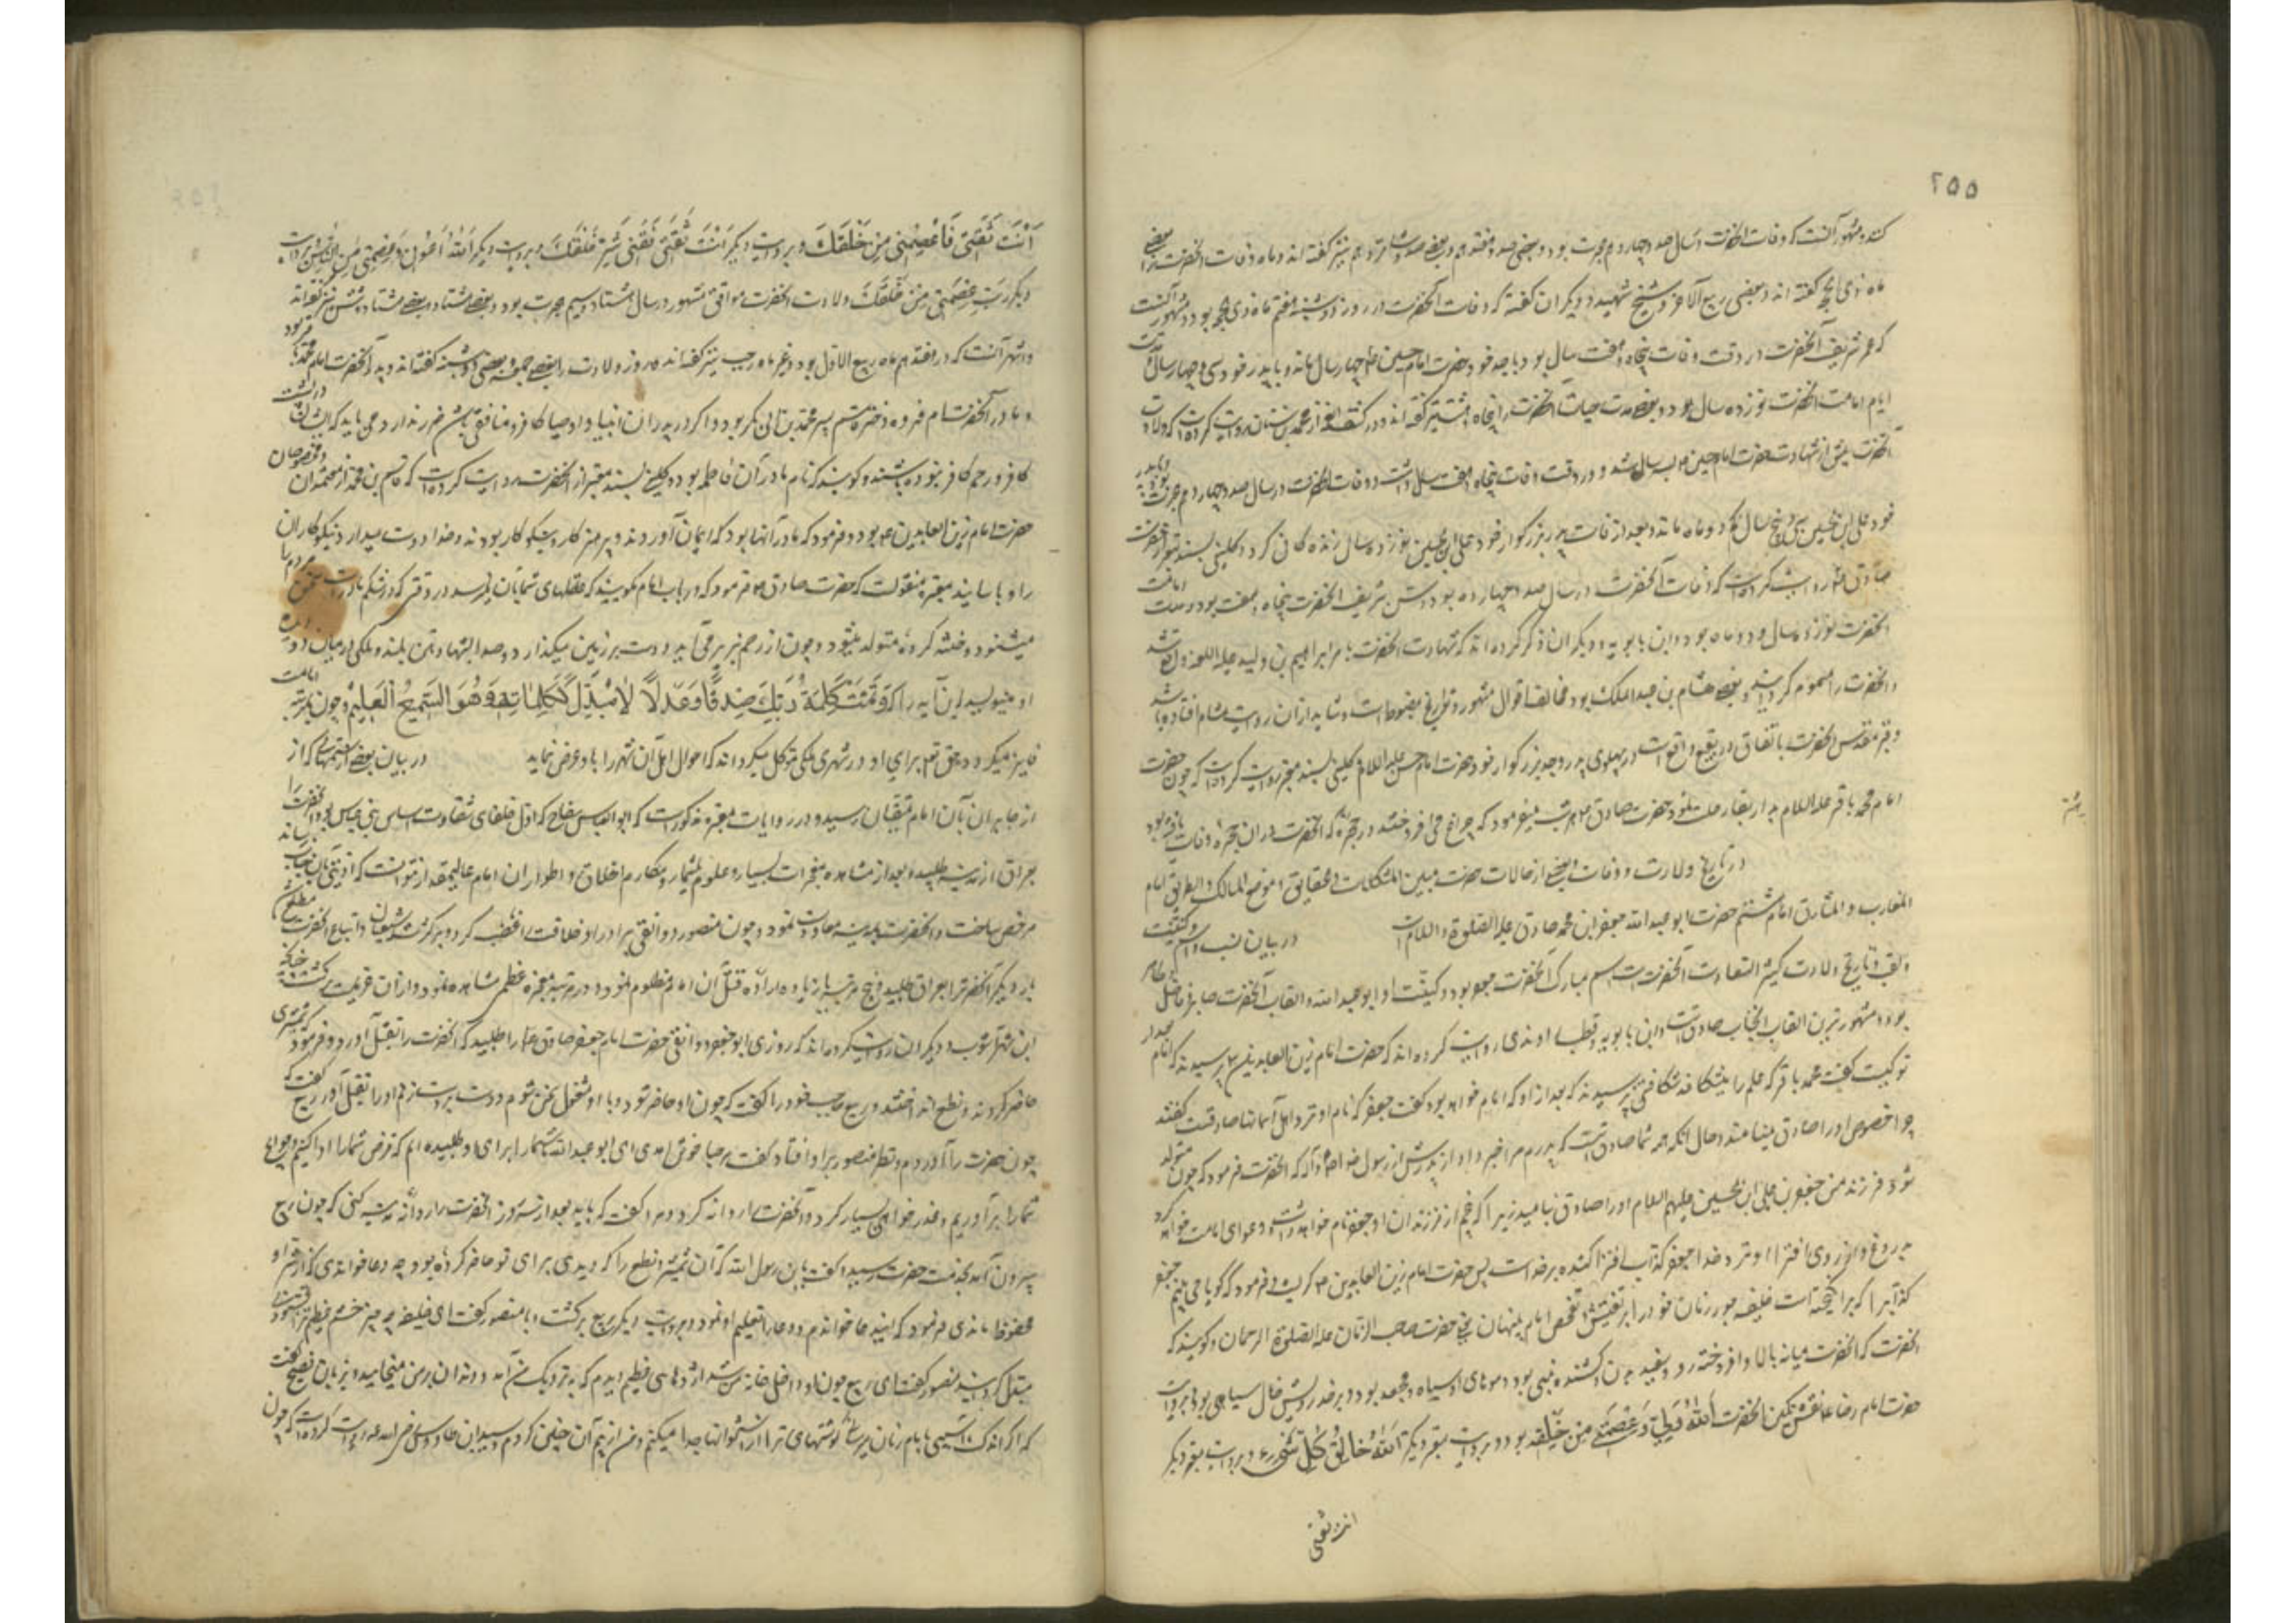 ٢٥٥
کنند و مشهور آنست که وفات آنحضرت در سال صد و چهاردهم هجرت بود و بعضی صد و هفدهم و بعضی صد و شانزدهم نیز گفته اند و ماه وفات آنحضرت را بعضی
ماه ذی الحجه گفته اند و بعضی ربیع الآخر و شیخ شهید و دیگران گفته که وفات آنحضرت در روز دوشنبه هفتم ماه ذی الحجه بود و مشهور آنست
که عمر شریف آنحضرت در وقت وفات پنجاه و هفت سال بود با جد خود حضرت امام حسین ع چهار سال ماند و با پدر خود سی و چهار سال و مدت
ایام امامت آنحضرت نوزده سال بود و بعضی مدت حیات آنحضرت را پنجاه و هشت نیز گفته اند و در کشف الغمه از محمد بن سنان روایت کرده است که ولادت
آنحضرت پیش از شهادت حضرت امام حسین ع بسه سال شد و در وقت وفات پنجاه و هفت سال داشت و وفات آنحضرت در سال صد و چهاردهم هجرت بود و با پدر
خود علی ابن الحسین سی و پنج سال کم دو ماه ماند و بعد از وفات پدر بزرگوار خود علی ابن الحسین نوزده سال زندگانی کرد و کلینی بسند معتبر از حضرت
صادق ع روایت کرده است که وفات آنحضرت در سال صد و چهارده بود و سن شریف آنحضرت پنجاه و هفت بود و مدت امامت
آنحضرت نوزده سال و دو ماه بود و ابن بابویه و دیگران ذکر کرده اند که شهادت آنحضرت بامر ابراهیم بن ولید علیه اللعنه واقع شد
و آنحضرت را مسموم گردانید و بعضی هشام بن عبدالملک بود مخالف اقوال مشهور و تواریخ مضبوط است و شاید از آن روایت هشام افتاده باشد
و قبر مقدس آنحضرت باتفاق در بقیع واقع است در پهلوی پدر و جد بزرگوار خود حضرت امام حسن علیه السلام کلینی بسند معتبر روایت کرده است که چون حضرت
امام محمد باقر علیه السلام بدار بقا رحلت نمود حضرت صادق ع هر شب میفرمود که چراغ می افروختند در حجره که آنحضرت در آن حجره وفات یافته بود
در تاریخ ولادت و وفات و بعضی از حالات حضرت مبین المشکلات و الحقایق و موضح المسالک و الطریق امام
المغارب و المشارق امام ششم حضرت ابو عبدالله جعفر ابن محمد صادق علیه الصلوة و السلام است در بیان نسب و اسم و کنیت
و لقب و تاریخ ولادت کثیر السعادت آنحضرت است اسم مبارک آنحضرت جعفر بود و کنیت او ابو عبدالله و القاب آنحضرت صابر و فاضل و طاهر
بود و مشهورترین القاب آنجناب صادق است و ابن بابویه و قطب راوندی روایت کرده اند که حضرت امام زین العابدین ع پرسیدند که امام بعد از
تو کیست گفت محمد باقر که علم را بشکافد شکافتنی پرسیدند که بعد از او که امام خواهد بود گفت جعفر که نام او نزد اهل آسمانها صادقست گفتند
چرا خصوص او را صادق مینامند و حال آنکه همه شما صادق است که پدرم مرا خبر داد از پدرش از رسول خدا ص و آله که آنحضرت فرمود که چون متولد
شود فرزند من جعفر بن محمد بن علی ابن الحسین علیهم السلام او را صادق نامید زیرا که پنجم از فرزندان او جعفر نام خواهد داشت و دعوای امامت خواهد کرد
بدروغ و از روی افترا او نزد خدا جعفر کذاب افترا کننده بر خداست پس حضرت امام زین العابدین ع گریست و فرمود که گویا می بینم جعفر
کذاب را که برانگیخته است خلیفه جور زمان خود را بر تفتیش و تفحص امام پنهان یعنی حضرت صاحب الزمان علیه الصلوة الرحمان و گویند که
آنحضرت که آنحضرت میانه بالا و افروخته رو و سفید بدن و کشیده بینی بود و موهای او سیاه و مجعد بود و بر خد رویش خال سیاهی بود و بروایت
حضرت امام رضا ع نقش نگین آنحضرت اَللهُ وَلِیّی وَ عِصْمَتی مِنْ خَلْقِهِ بود و بروایت معتبر دیگر اَللهُ خالِقُ کُلِّ شَیْءٍ و بروایت معتبر دیگر
انت ثقتی
اَنْتَ ثِقَتی فَاعْصِمْنی مِنْ خَلْقِکَ و بروایت دیگر
دیگر رَبِّ عِصَمْتَنی مِنْ خَلْقِکَ ولادت آنحضرت موافق مشهور در سال هشتاد و سیم هجرت بود و بعضی هشتاد و بعضی هشتاد و شش نیز گفته اند
و اشهر آنست که در هفتدهم ماه ربیع الاول بود و غره ماه رجب نیز گفته اند و روز ولادت را بعضی جمعه و بعضی دوشنبه گفته اند و پدر آنحضرت امام محمد باقر بود
و مادر آنحضرت ام فروه دختر قاسم پسر محمد بن ابی بکر بود و اگر در پدران انبیا و اوصیا کافر و منافق
کافر و رحم کافر نبوده باشند و گویند که نام مادر آن فاطمه بود و کلینی بسند معتبر از آنحضرت روایت کرده است که قاسم بن محمد از معتمدان و مخصوصان
حضرت امام زین العابدین ع بود و فرمود که مادر آنها بود که ایمان آوردند و پرهیزکار و نیکوکار بودند و خدا دوست میدارد نیکوکاران
را و باسانید معتبره منقولست که حضرت صادق ع فرمود که در باب امام
میشنود و ختنه کرده متولد میشود و چون از رحم بزیر می آید دست بر زمین میگذارد و صدا بشهادتین بلند و ملکی در میان دو
او مینویسد این آیه را که وَ تَمَّتْ کَلِمَةُ رَبِّکَ صِدْقًا وَ عَدْلًا لٰا مُبَدِّلَ لِکَلِمٰاتِهِ وَ هُوَ السَّمیعُ الْعَلیمُ و چون بمرتبه امامت
فایز میگردد حق تعالی برای او در شهری ملکی موکل میگرداند که احوال اهل آن شهر را باو عرض نماید در بیان بعضی از ستمها که از
از جابران بآن امام متقیان رسید و در روایات معتبره مذکور است که ابوالعباس سفاح که اول خلفای شقاوت اساس بنی عباس بود آنحضرت را
بعراق از مدینه طلبید و بعد از مشاهده معجزات بسیار و علوم بیشمار و مکارم اخلاق و اطوار آن امام عالیمقدار نتوانست که اذیتی بآن جناب رساند
مرخص ساخت و آنحضرت بمدینه معاودت نمود و چون منصور دوانقی برادر او خلافت
بار دیگر آنحضرت را بعراق طلبید و پنج مرتبه یا زیاده اراده قتل آن امام مظلوم نمود و در هر مرتبه معجزه عظمی مشاهده نمود و از آن عزیمت برگشت چنانکه
ابن شهر آشوب و دیگران روایت کرده اند که روزی ابو جعفر دوانقی حضرت امام جعفر صادق ع را طلبید که آنحضرت را بقتل آورد و فرمود که شمشیری
حاضر کردند و نطع انداختند و ربیع حاجب خود را گفت که چون او حاضر شود و با او مشغول سخن شوم و دست بر دست زنم او را بقتل آور ربیع گفت که
چون حضرت را آوردم و نظر منصور بر او افتاد گفت مرحبا خوش آمدی ای ابو عبدالله شما را برای آن طلبیده ام که قرض شما را ادا کنم و حوائج
شما را برآوریم و عذر خواهی بسیار کرد و آنحضرت را روانه کرد و مرا گفت که باید بعد از سه روز آنحضرت را روانه مدینه کنی که چون ربیع
بیرون آمد بخدمت حضرت رسید و گفت یابن رسول الله که آن شمشیر و نطع را که دیدی برای تو حاضر کرده بود چه دعا خواندی که از شر او
محفوظ ماندی فرمود که این دعا خواندم و دعا را تعلیم او نمود و بروایت دیگر ربیع برگشت و با منصور گفت ای خلیفه چه چیز خشم عظیم ترا بخشنودی
مبدل گردانید منصور گفت ای ربیع چون او داخل خانه من شد اژدهای عظیم دیدم که نزدیک من آمد و دندان بر من میخائید و بزبان فصیح گفت
که اگر اندک آسیبی بامام زمان برسانی گوشتهای ترا از استخوانها جدا میکنم و من از بیم آن چنین کردم و سید ابن طاووس رضی الله عنه روایت کرده است که چون